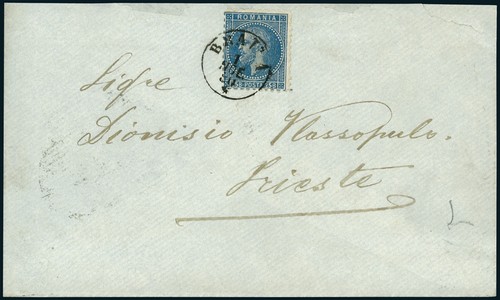 ROMANIA
1
NOE
Sigre
Dionisio Vlassopulo.
Trieste